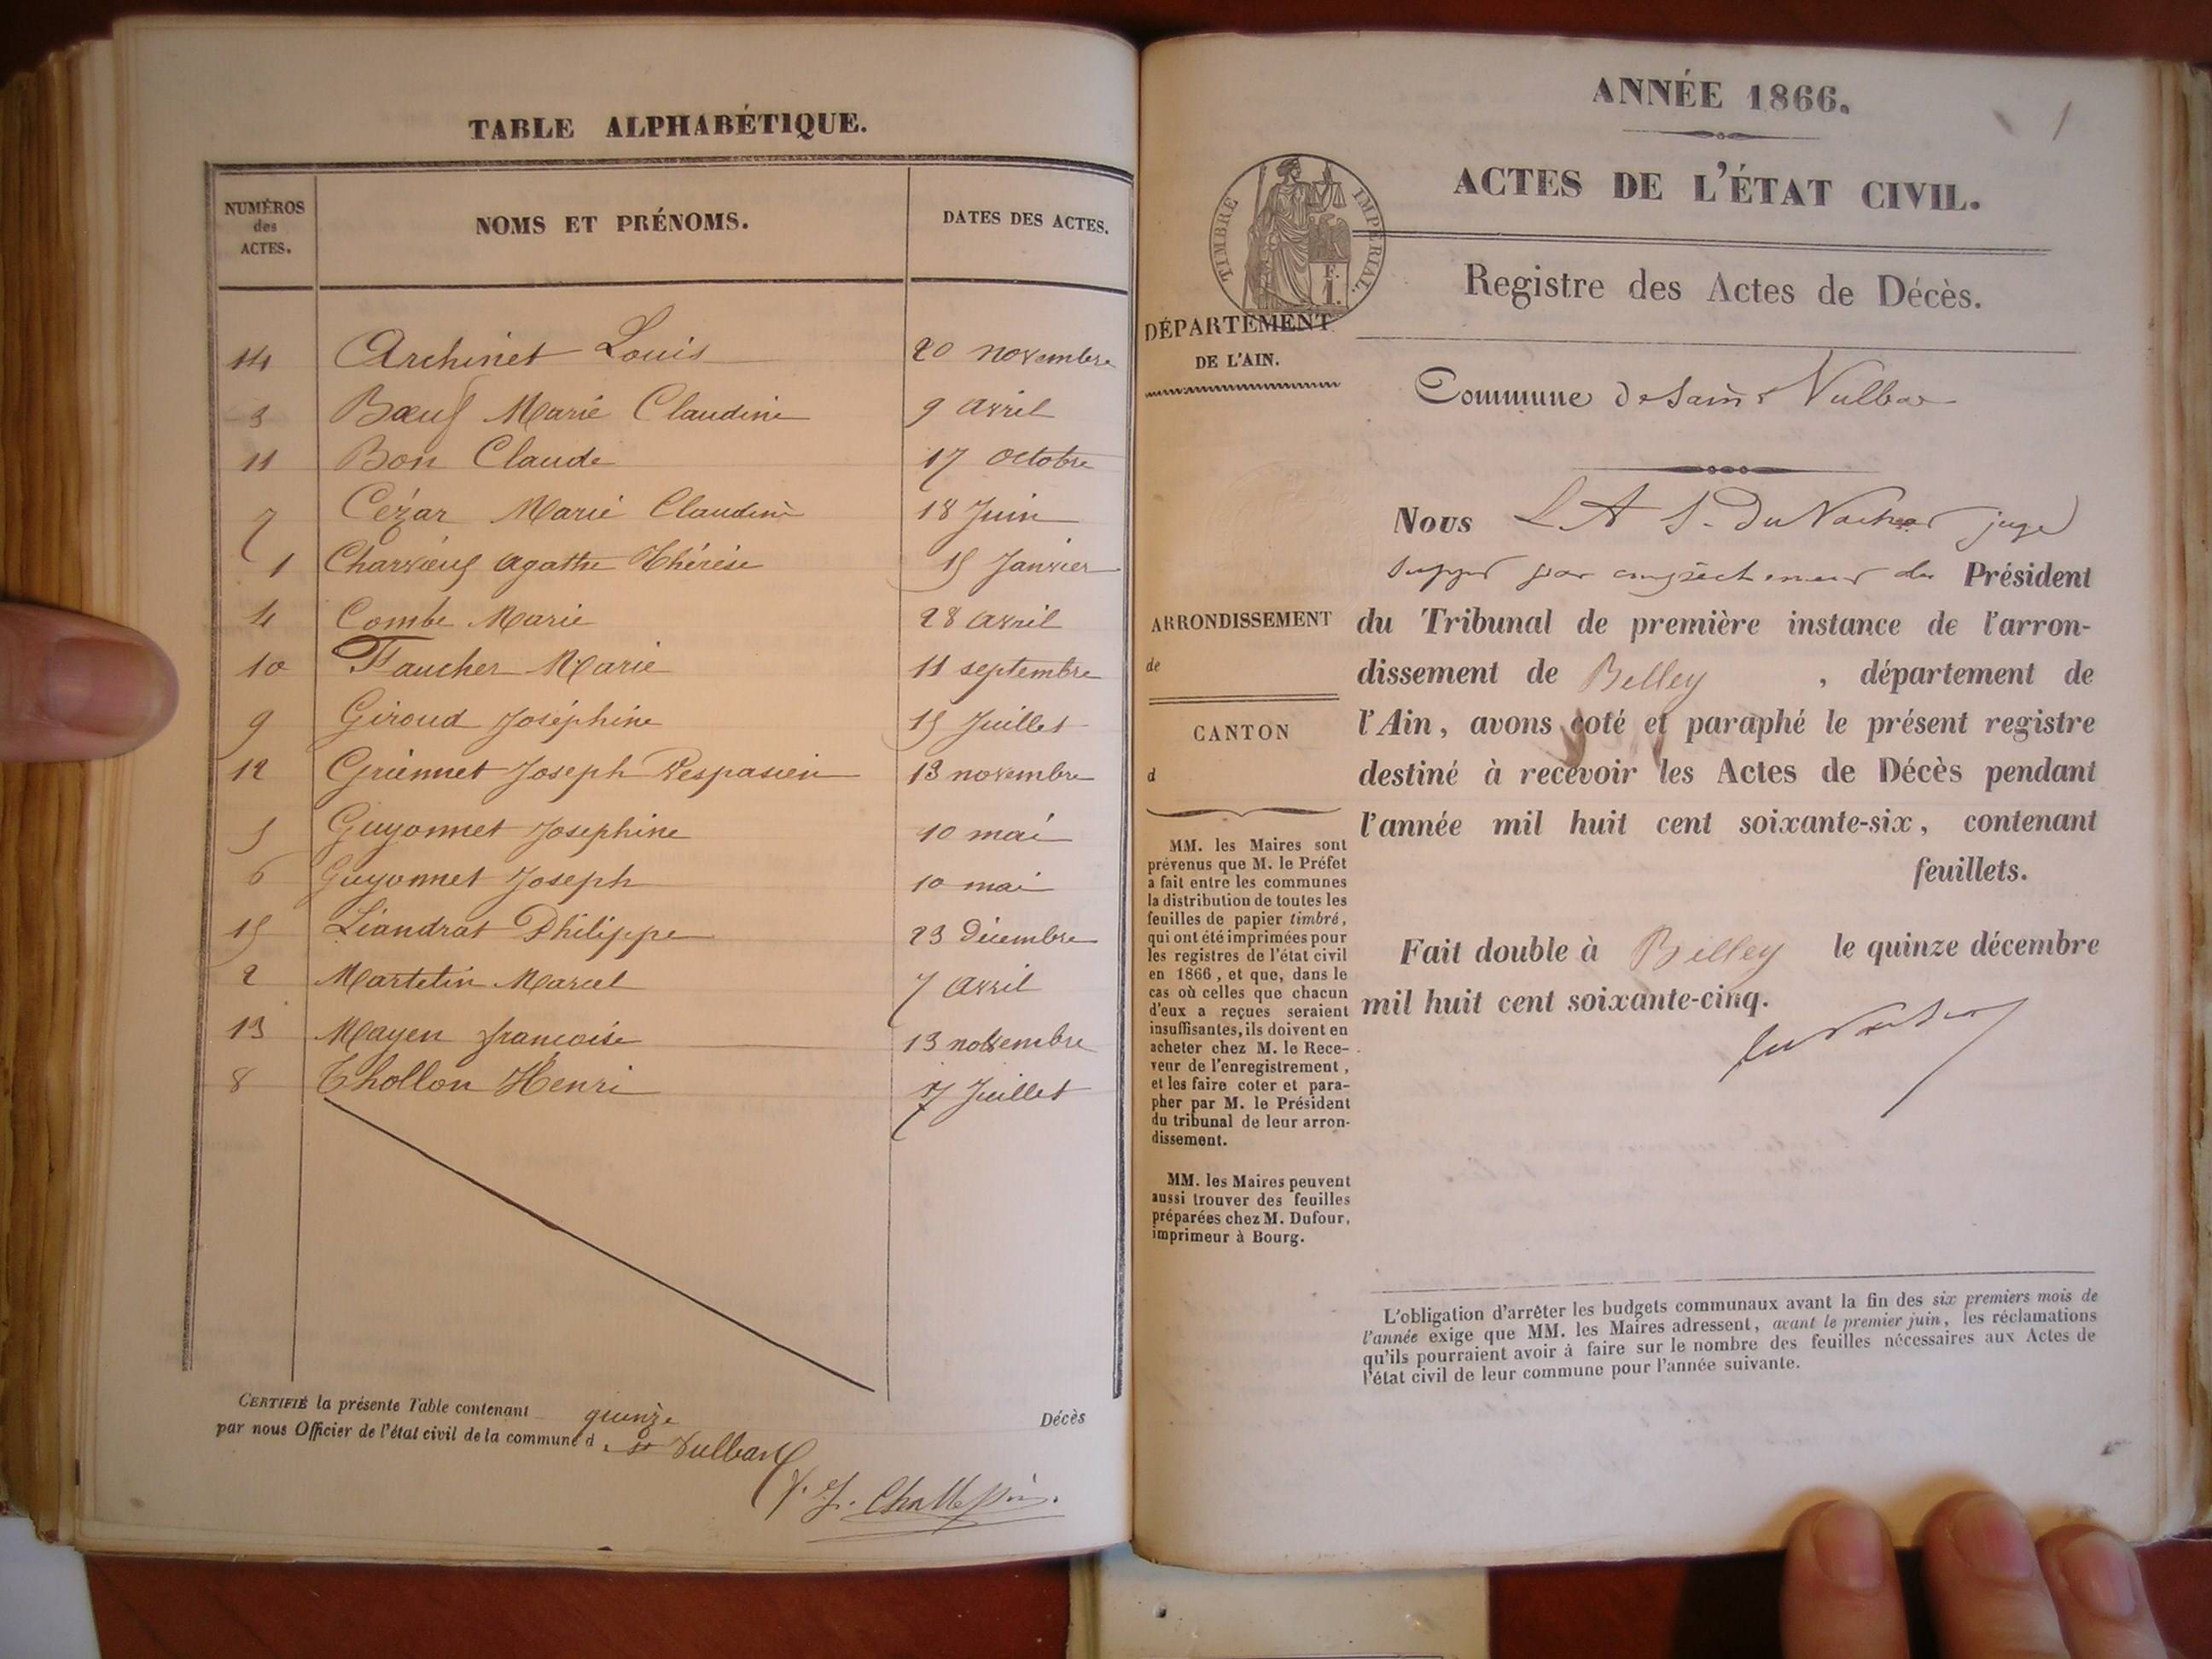 TABLE ALPHABÉTIQUE.
NUMÉROS des ACTES. NOMS ET PRÉNOMS. DATES DES ACTES.
14 Archinet Louis 20 novembre
3 Bœuf Marie Claudine 9 avril
11 Bon Claude 17 octobre
7 Cézar Marie Claudine 18 Juin
1 Charvœuf Agathe Thérèse 15 Janvier
4 Combe Marie 28 avril
10 Faucher Marie 11 septembre
9 Giroud Joséphine 15 Juillet
12 Griennet Joseph Vespasien 13 novembre
5 Guyonnet Josephine 10 mai
6 Guyonnet Joseph 10 mai
15 Liandrat Philippe 23 décembre
2 Martelin Marcel 7 avril
13 Mayen françoise 13 novembre
8 Thollon Henri 7 Juillet
CERTIFIÉ la présente Table contenant quinze Décès
par nous Officier de l'état civil de la commune d e St Vulbas
ANNÉE 1866.
1
ACTES DE L'ÉTAT CIVIL.
TIMBRE IMPÉRIAL.
1 F.
Registre des Actes de Décès.
DÉPARTEMENT
DE L'AIN.
Commune de Saint Vulbas
Nous L A S. Du Nacher juge
suppt par empêchement du Président
ARRONDISSEMENT
de
du Tribunal de première instance de l'arron-
dissement de Belley , département de
CANTON
d
l'Ain, avons coté et paraphé le présent registre
destiné à recevoir les Actes de Décès pendant
l'année mil huit cent soixante-six, contenant
feuillets.
Fait double à Belley le quinze décembre
mil huit cent soixante-cinq.
MM. les Maires sont
prévenus que M. le Préfet
a fait entre les communes
la distribution de toutes les
feuilles de papier timbré,
qui ont été imprimées pour
les registres de l'état civil
en 1866, et que, dans le
cas où celles que chacun
d'eux a reçues seraient
insuffisantes, ils doivent en
acheter chez M. le Rece-
veur de l'enregistrement,
et les faire coter et para-
pher par M. le Président
du tribunal de leur arron-
dissement.
MM. les Maires peuvent
aussi trouver des feuilles
préparées chez M. Dufour,
imprimeur à Bourg.
L'obligation d'arrêter les budgets communaux avant la fin des six premiers mois de
l'année exige que MM. les Maires adressent, avant le premier juin, les réclamations
qu'ils pourraient avoir à faire sur le nombre des feuilles nécessaires aux Actes de
l'état civil de leur commune pour l'année suivante.